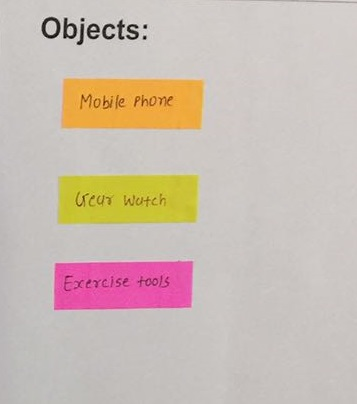 Objects:
Mobile Phone
Gear Watch
Exercise tools